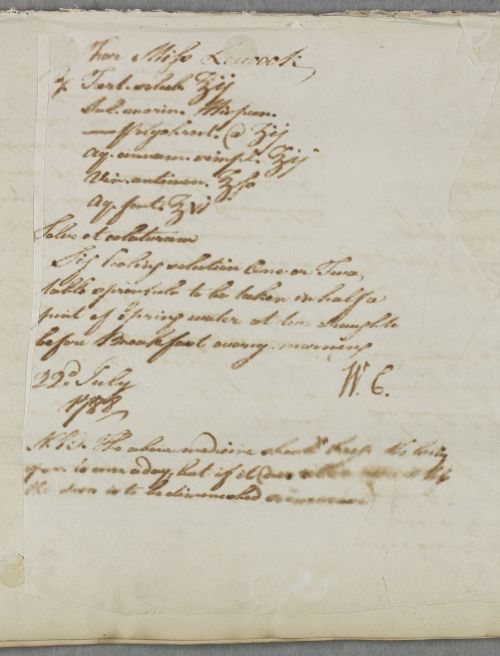 For Miss
℞ Tart. solub. ʒij
Sal. marin. Hispan.
@ ʒij
Aq. cinnam. simpl. ʒij
Vin. antimon. ʒſs
Aq. font. ʒvi
Solve et colaturam
Sig. Cooling solution One or Two
table spoonfuls to be taken in half a
pint of Spring water at two draughts
before Breakfast every morning
22d. July W. C.
1788
N.B. The above medicine should keep the body
open is once a day, but if it
the dose is to be diminished